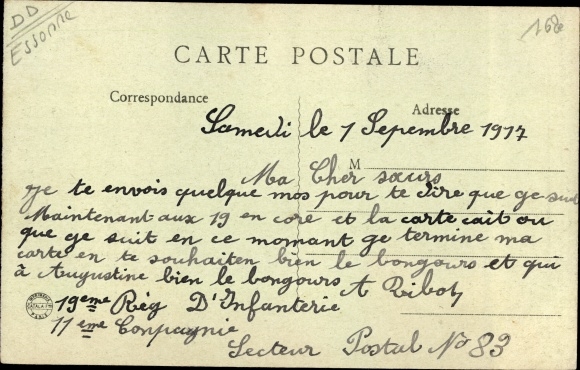 DD
Essonne
168
CARTE POSTALE
Correspondance
Adresse
Samedi le 1 Sepembre 1917
M
Ma Cher sœurs
ge te envois quelque mos pour te dire que ge suit
Maintenant aux 19 en core et la carte cait ou
que ge suit en ce momant ge termine ma
carte en te souhaiten bien le bongours et qui
à Augustine bien le bongours A Ribot
19eme Rég D'Infanterie
11eme Conpaynie
Secteur Postal No 83